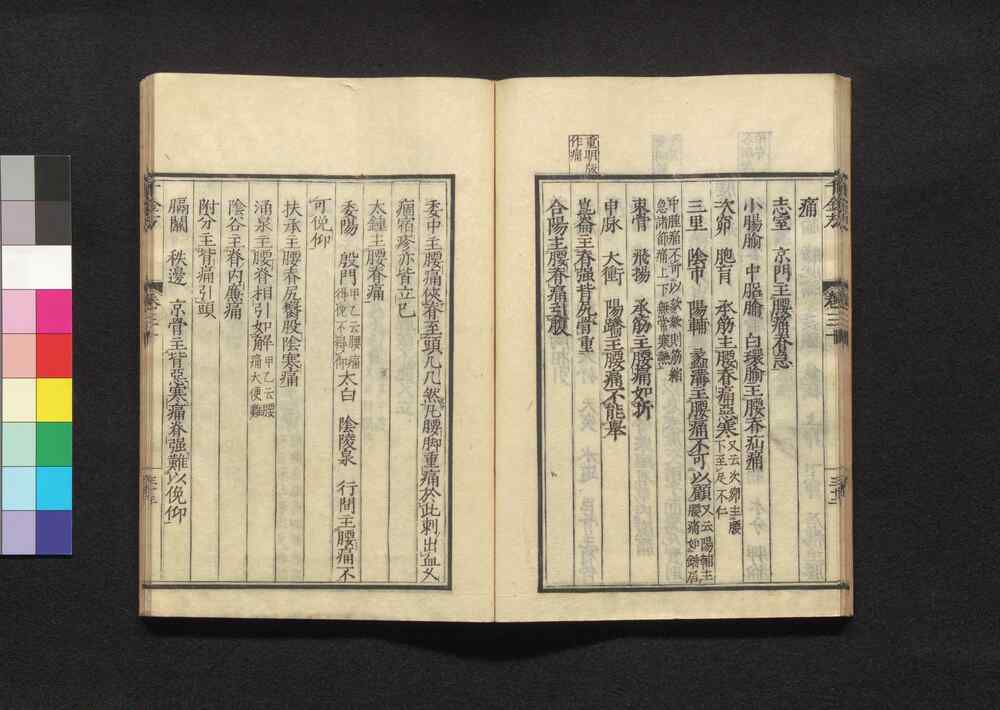 重明啓
作痛
痛
志室　京門主腰痛脊急
小腸腧　中膂腧　白環腧主腰脊疝痛
次窌　胞肓　承筋主腰脊痛惡寒又云次窌主腰下至足不仁
三里　陰市　陽輔　蠡溝主腰痛不可以顧又云陽輔主腰痛如錘居
中腫痛不可以欬欬則筋縮急諸節痛上下無常寒熱
束骨　飛揚　承筋主腰痛如折
申脉　太衝　陽蹻主腰痛不能舉
崑崙主脊强背尻骨重
合陽主腰脊痛引腹
委中主腰痛俠脊至頭几几然凡腰脚重痛於此刺出血久
痼宿疹亦皆立已
太鍾主腰脊痛
委陽　殷門甲乙云腰痛得俛不得仰太白　陰陵泉　行間主腰痛不
可俛仰
扶承主腰脊尻臀股陰寒痛
涌泉主腰脊相引如解甲乙云腰痛大便難
陰谷主脊内廉痛
附分主背痛引頭
膈關　秩邊　京骨主背惡寒痛脊强難以俛仰